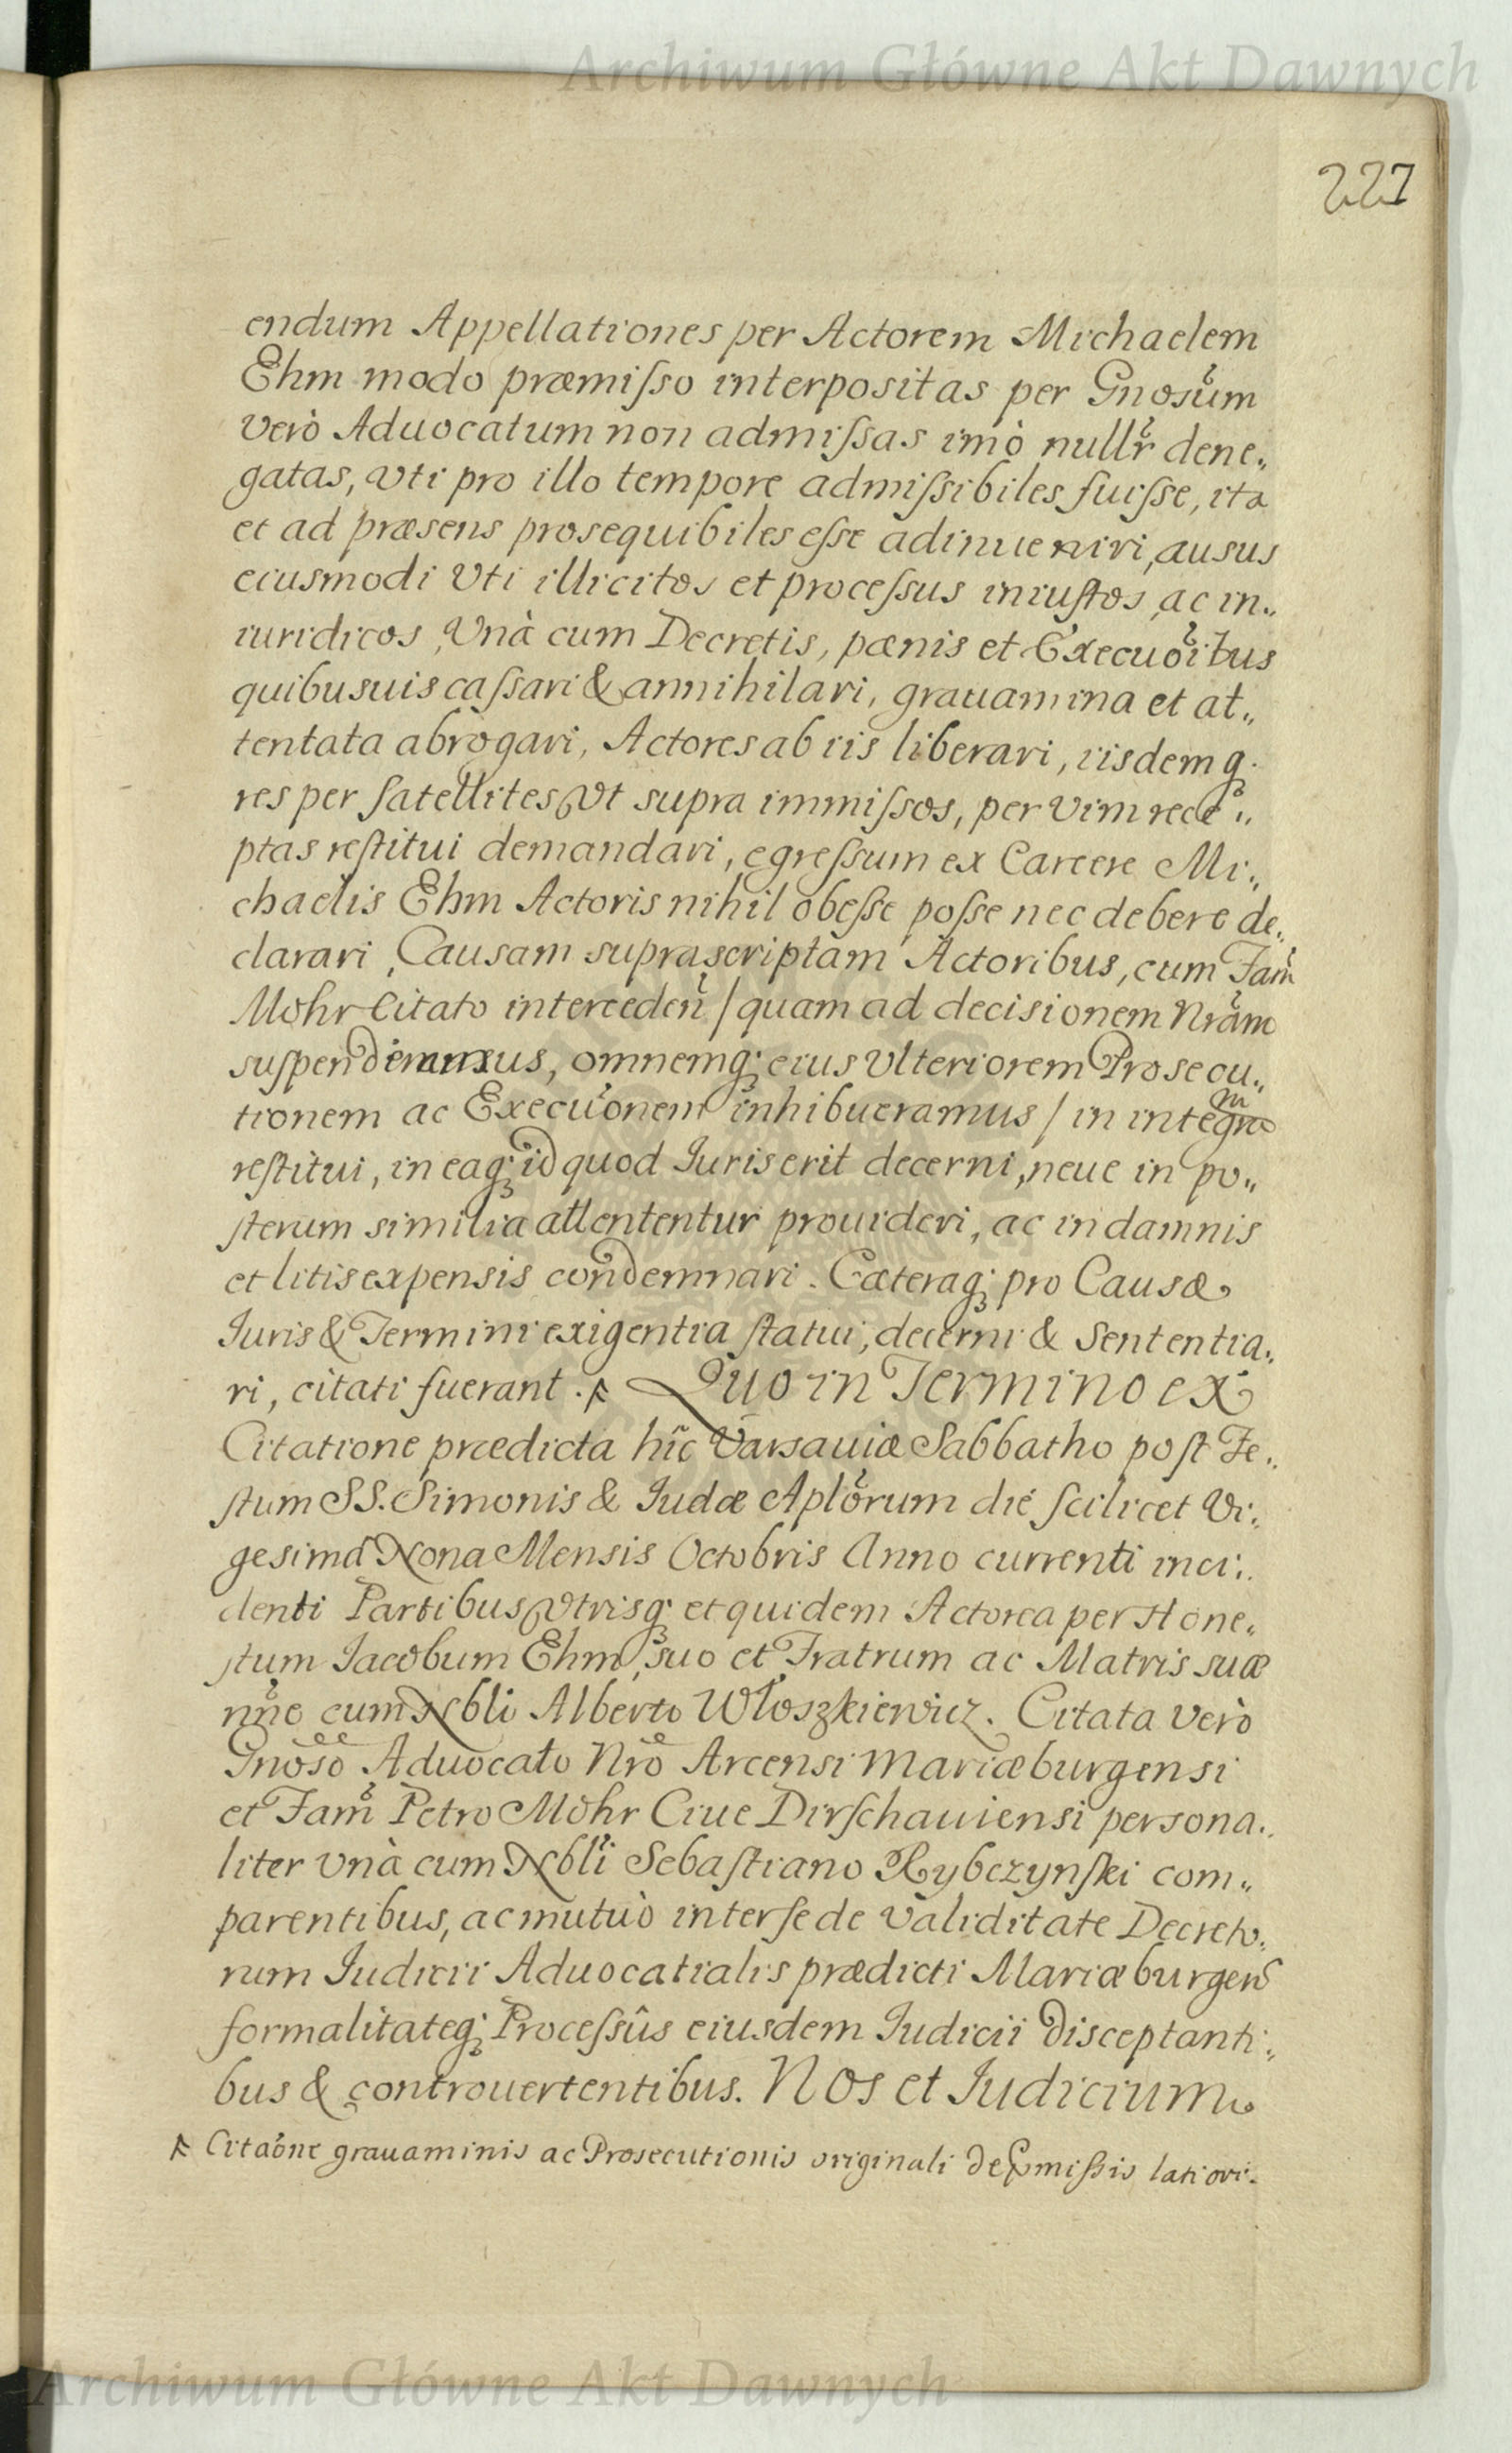 Archiwum Główne Akt Dawnych
221
endum Appellationes per Actorem Michaelem
Ehm modo præmiſso interpositas per Gnosũm
verò Aduocatum non admiſsas imò nullr̃ dene„
gatas, vti pro illo tempore admiſsibiles fuiſse, ita
et ad præsens prosequibiles eſse adinueniri, ausus
eiusmodi vti illicitos et proceſsus iniuſtos ac in„
iuridicos, Vnà cum Decretis, pænis et Execuõitus
quibusuis caſsari & annihilari, grauamina et at„
tentata abrogari, Actores ab iis liberari, iisdemq;
res per ſatellites vt supra immiſsos, per vim rece„
ptas reſtitui demandari, egreſsum ex Carcere Mi„
chaelis Ehm Actoris nihil obeſse poſse nec debere de„
clarari, Causam suprascriptam Actoribus, cum Fam̃
Mohr Citato interceden̄ / quam ad decisionem Nrãm
suſpendimus, omnemq; eius Vlteriorem Prosecu„
tionem ac Execuõnem inhibueramus / in integrũm
reſtitui, in eaq; id quod Iuris erit decerni, neue in po„
ſterum similia attententur prouideri, ac in damnis
et litis expensis condemnari. Cæteraq; pro Causæ
Iuris & Termini exigentia ſtatui, decerni & Sententia„
ri, citati fuerant. Quo in Termino ex
Citatione prædicta hic̃ Varsauiæ Sabbatho poſt Fe„
ſtum SS. Simonis & Iudæ Aplõrum die ſcilicet Vi„
gesima Nona Mensis Octobris Anno currenti inci„
denti Partibus vtrisq; et quidem Actorea per Hone„
ſtum Iacobum Ehm, suo et Fratrum ac Matris suæ
nñe cum Nbli Alberto Włoszkiewicz. Citata verò
Gnõso Aduocato Nrõ Arcensi Mariæburgensi
et Fam̃ Petro Mohr Ciue Dirſchauiensi persona„
liter vnà cum Nbli Sebaſtiano Rybczynſki com„
parentibus, ac mutuò inter ſe de validitate Decreto„
rum Iudicii Aduocatialis prædicti Mariæburgens̃
formalitateq; Proceſsûs eiusdem Iudicii disceptanti„
bus & controuertentibus. Nos et Iudicium
Citaõne grauaminis ac Prosecutionis originali de præmiſsis latiori.
Archiwum Główne Akt Dawnych